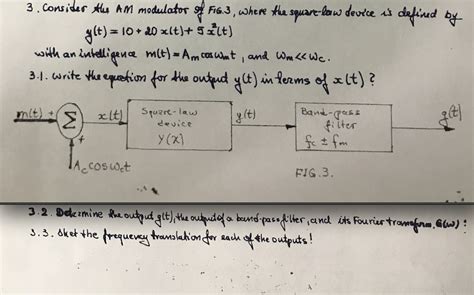 3. Consider the AM modulator of FIG.3, where the square-law device is defined by
y(t) = 10 + 20 x(t) + 5 x²(t)
with an intelligence m(t) = Am cos ωmt, and ωm << ωc.
3.1. Write the equation for the output y(t) in terms of x(t) ?
m(t) + Σ x(t) Square-law device Y(x) y(t) Band-pass filter fc ± fm g(t)
+
Ac cos ωct
FIG.3.
3.2. Determine the output g(t), the output of a band-pass filter, and its Fourier transform, G(ω) !
3.3. Sket the frequency translation for each of the outputs !